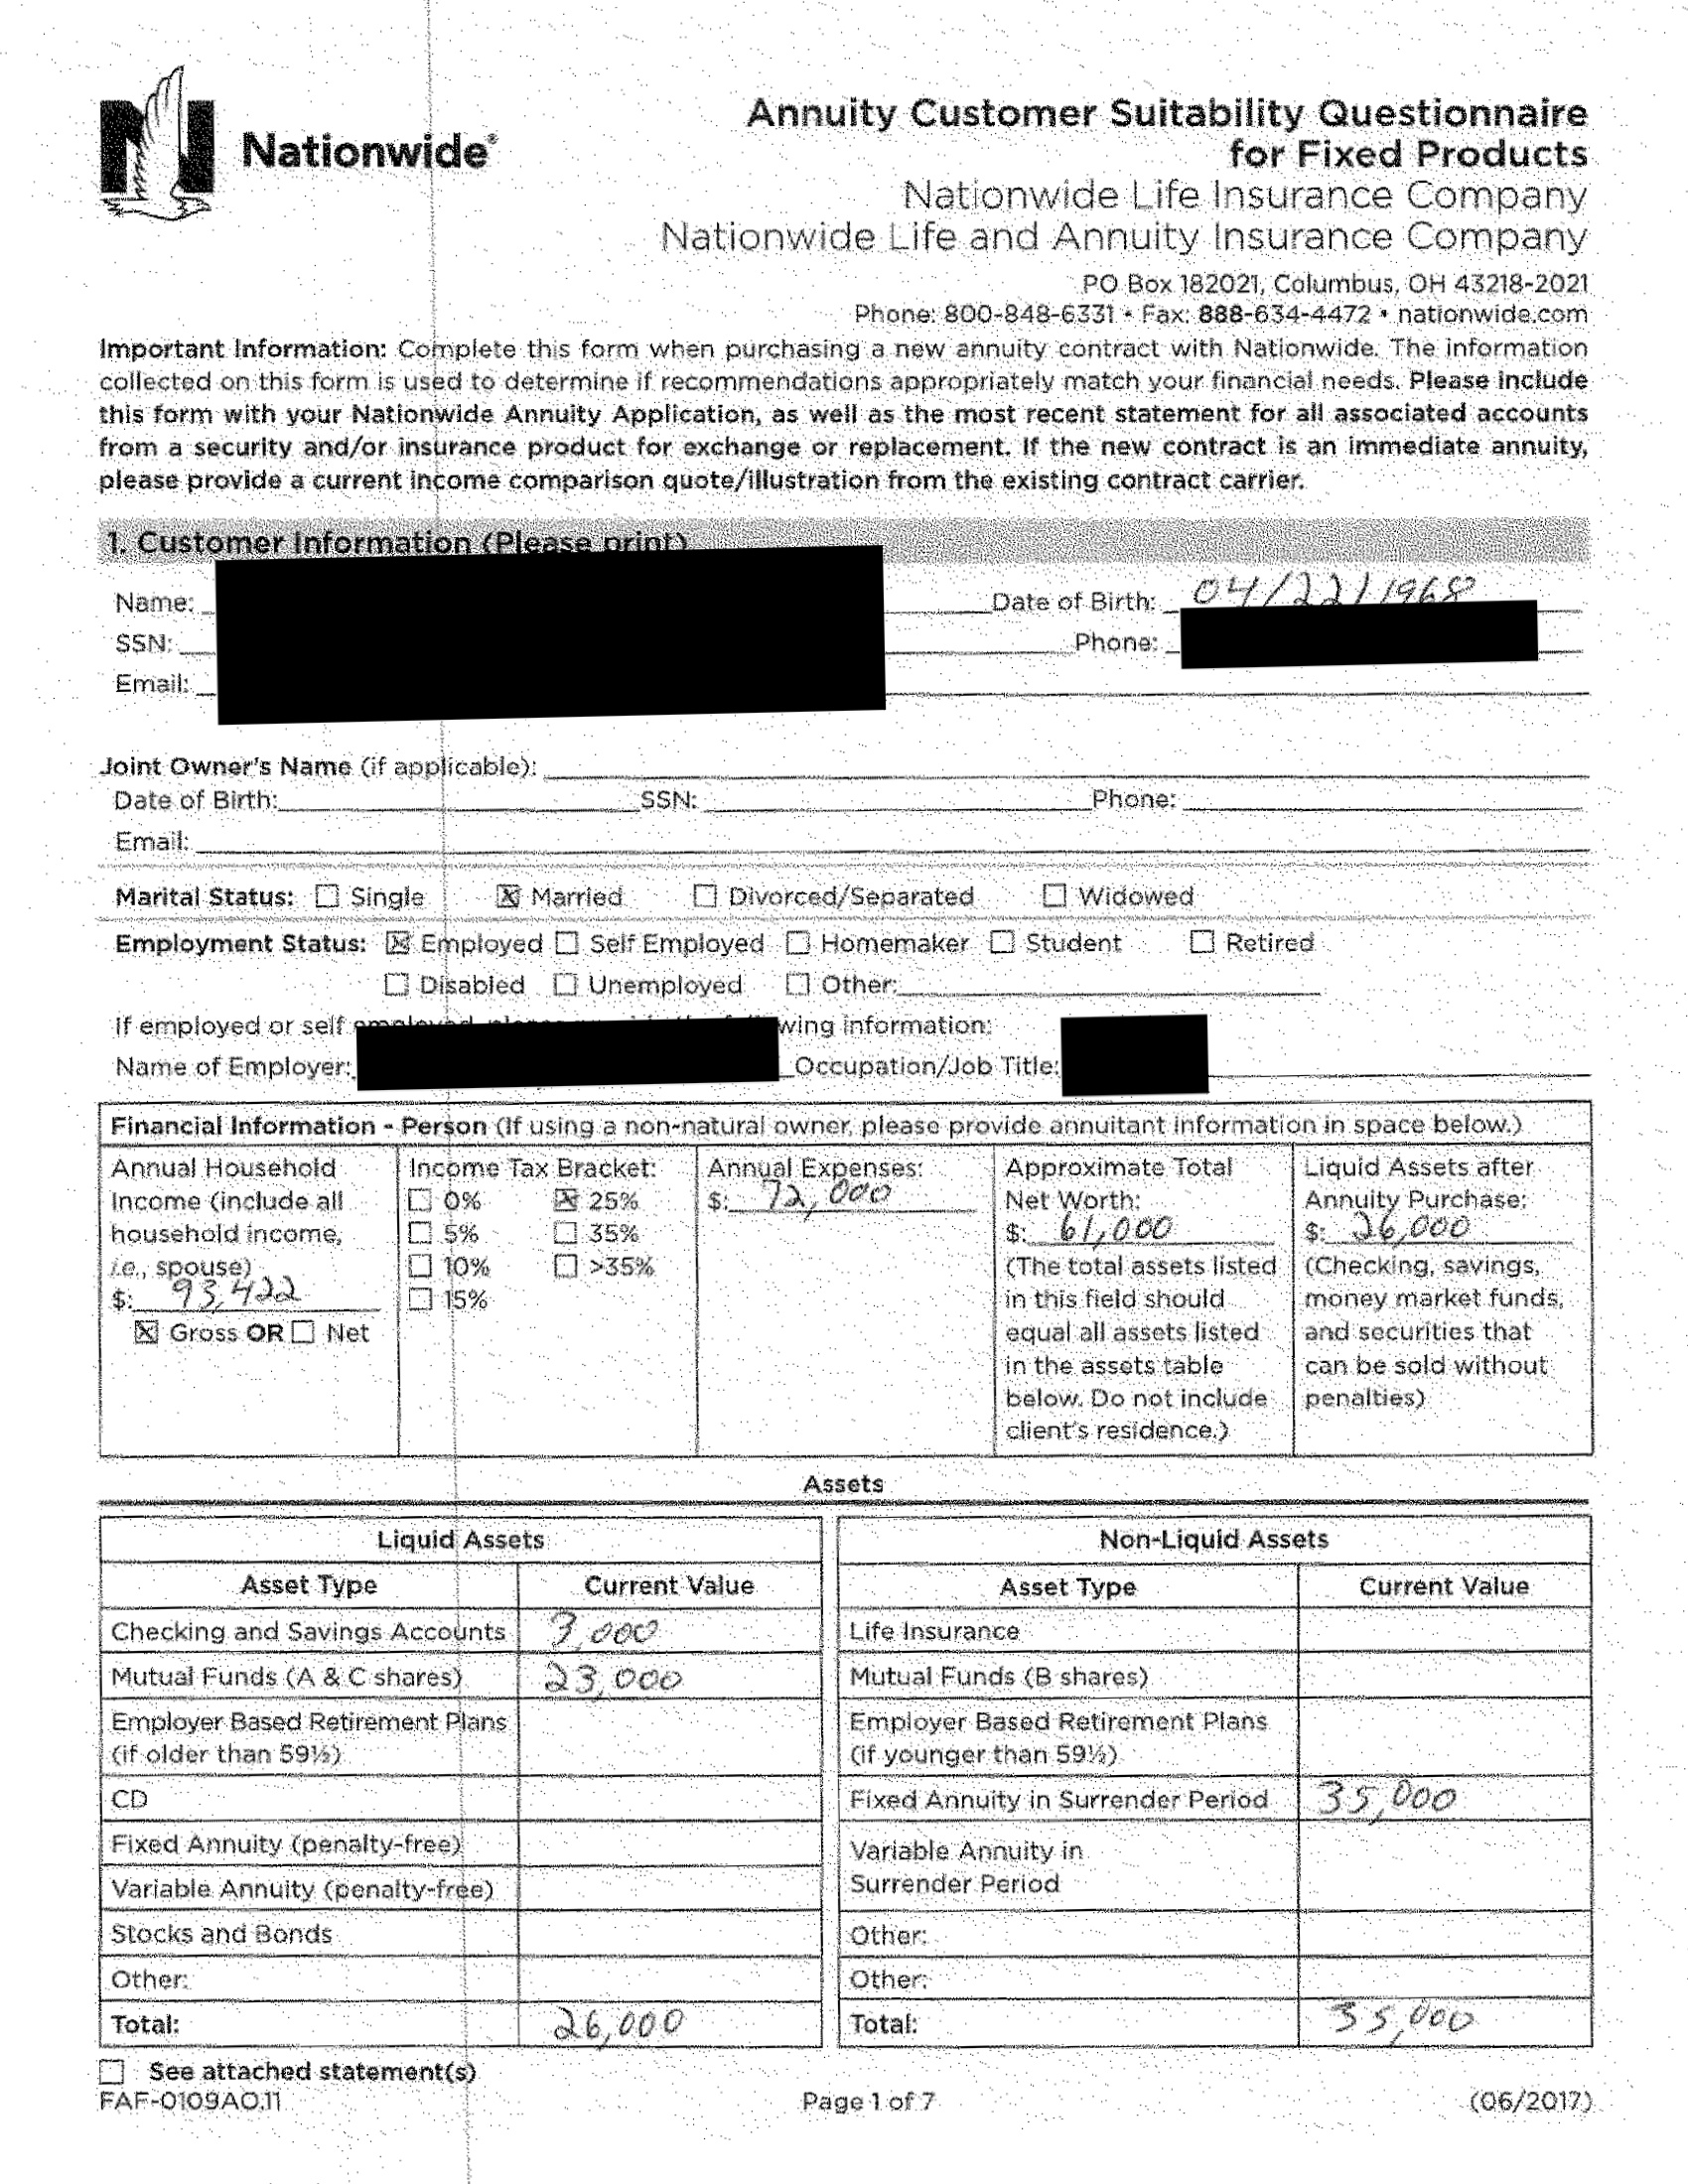 Nationwide®
Annuity Customer Suitability Questionnaire
for Fixed Products
Nationwide Life Insurance Company
Nationwide Life and Annuity Insurance Company
PO Box 182021, Columbus, OH 43218-2021
Phone: 800-848-6331 • Fax: 888-634-4472 • nationwide.com
Important Information: Complete this form when purchasing a new annuity contract with Nationwide. The information
collected on this form is used to determine if recommendations appropriately match your financial needs. Please include
this form with your Nationwide Annuity Application, as well as the most recent statement for all associated accounts
from a security and/or insurance product for exchange or replacement. If the new contract is an immediate annuity,
please provide a current income comparison quote/illustration from the existing contract carrier.
1. Customer Information (Please print)
Name: Date of Birth: 04/22/1968
SSN: Phone:
Email:
Joint Owner's Name (if applicable):
Date of Birth: SSN: Phone:
Email:
Marital Status: ☐ Single ☒ Married ☐ Divorced/Separated ☐ Widowed
Employment Status: ☒ Employed ☐ Self Employed ☐ Homemaker ☐ Student ☐ Retired
☐ Disabled ☐ Unemployed ☐ Other:
If employed or self wing information:
Name of Employer: Occupation/Job Title:
Financial Information - Person (If using a non-natural owner, please provide annuitant information in space below.)
Annual Household
Income (include all
household income,
i.e., spouse)
$: 93,422
☒ Gross OR ☐ Net
Income Tax Bracket:
☐ 0% ☒ 25%
☐ 5% ☐ 35%
☐ 10% ☐ >35%
☐ 15%
Annual Expenses:
$: 72,000
Approximate Total
Net Worth:
$: 61,000
(The total assets listed
in this field should
equal all assets listed
in the assets table
below. Do not include
client's residence.)
Liquid Assets after
Annuity Purchase:
$: 26,000
(Checking, savings,
money market funds,
and securities that
can be sold without
penalties)
Assets
Liquid Assets
Asset Type Current Value
Checking and Savings Accounts 3,000
Mutual Funds (A & C shares) 23,000
Employer Based Retirement Plans
(if older than 59½)
CD
Fixed Annuity (penalty-free)
Variable Annuity (penalty-free)
Stocks and Bonds
Other:
Total: 26,000
Non-Liquid Assets
Asset Type Current Value
Life Insurance
Mutual Funds (B shares)
Employer Based Retirement Plans
(if younger than 59½)
Fixed Annuity in Surrender Period 35,000
Variable Annuity in
Surrender Period
Other:
Other:
Total: 35,000
☐ See attached statement(s)
FAF-0109AO.11 Page 1 of 7 (06/2017)